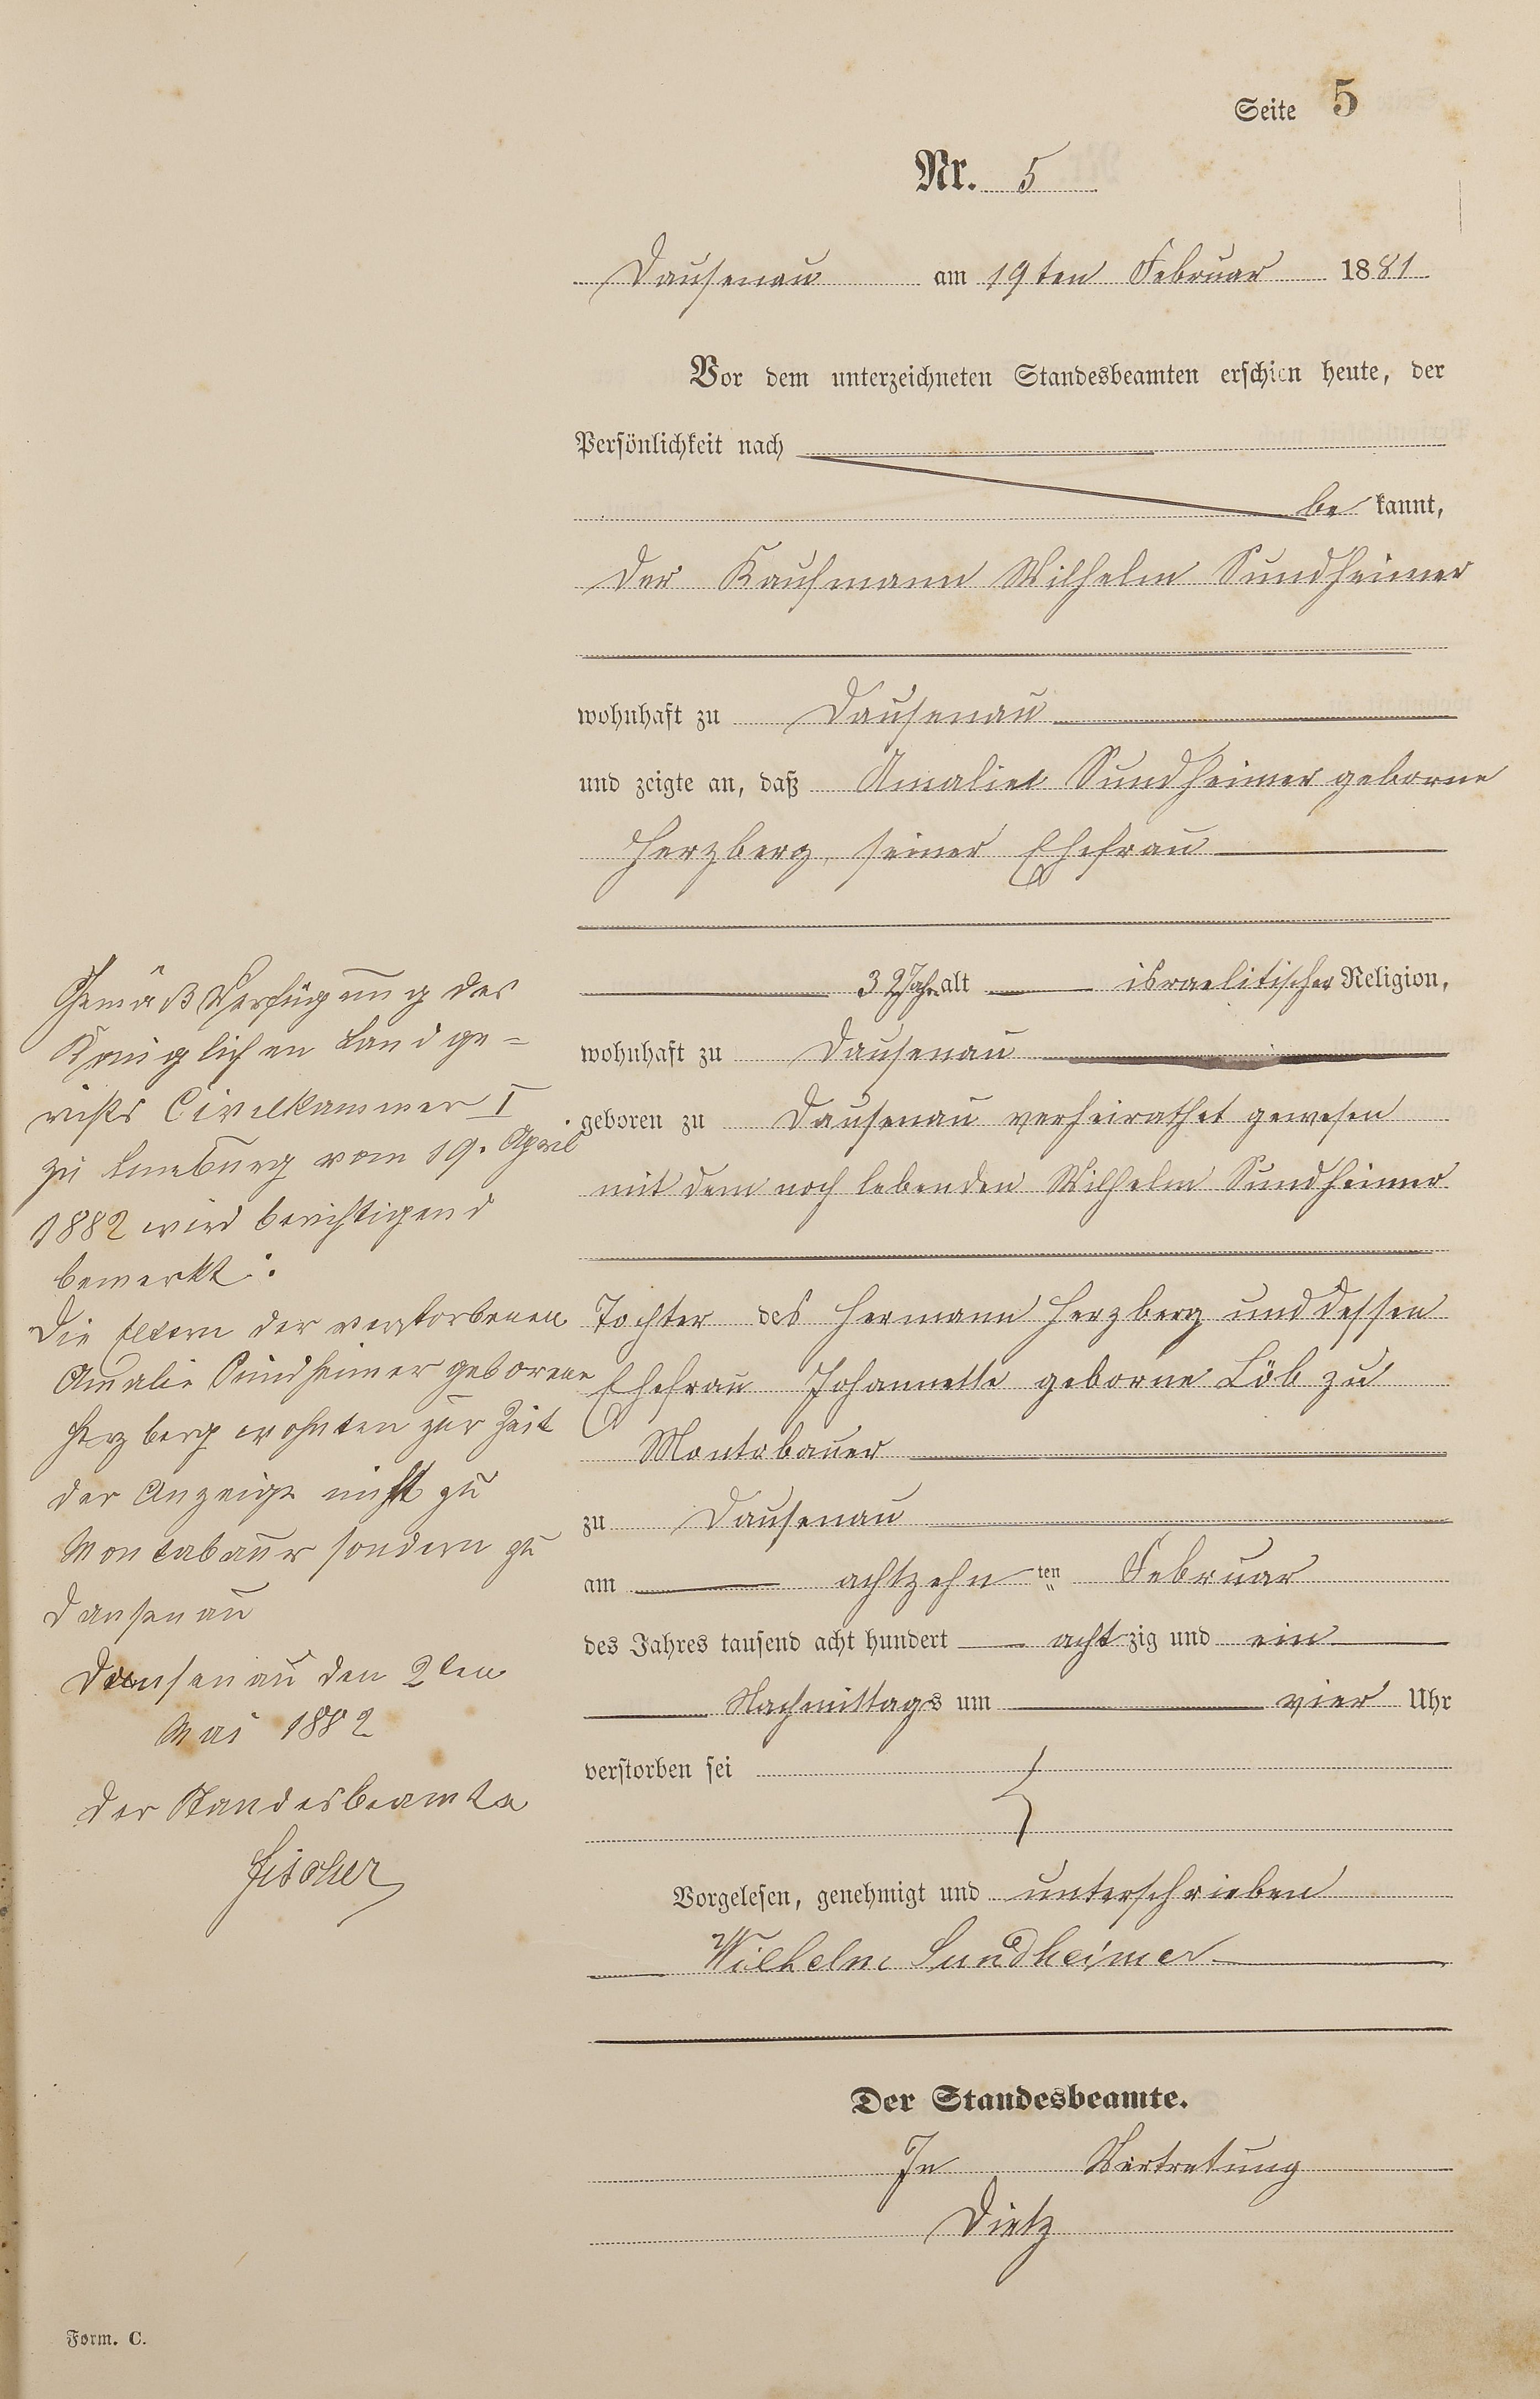 Seite 5
Nr. 5
Dausenau am 19ten Februar 1881
Vor dem unterzeichneten Standesbeamten erschien heute, der
Persönlichkeit nach
be kannt,
der Kaufmann Wilhelm Sundheimer
wohnhaft zu Dausenau
und zeigte an, daß Amalie Sundheimer geborne
Herzberg, seiner Ehefrau
32 Jahr alt israelitischer Religion,
wohnhaft zu Dausenau
geboren zu Dausenau verheirathet gewesen
mit dem noch lebenden Wilhelm Sundheimer
Tochter des Hermann Herzberg und dessen
Ehefrau Johannette geborne Löb zu
Montabauer
zu Dausenau
am achtzehn ten Februar
des Jahres tausend acht hundert acht zig und ein
Nachmittags um vier Uhr
verstorben sei
Vorgelesen, genehmigt und unterschrieben
Wilhelm Sundheimer
Der Standesbeamte.
In Vertretung
Dietz
Gemäß Verfügung des
Königlichen Landge-
richts Civilkammer I
zu Limburg vom 19. April
1882 wird berichtigend
bemerkt:
Die Eltern der verstorbenen
Amalie Sundheimer geborene
Herzberg wohnten zur Zeit
der Anzeige nicht zu
Montabaur sondern zu
Dausenau
Dausenau den 2ten
Mai 1882
Der Standesbeamte
Fischer
Form. C.